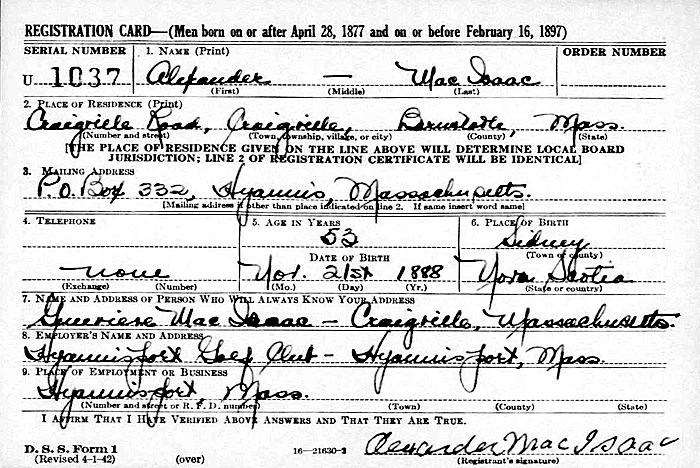 REGISTRATION CARD—(Men born on or after April 28, 1877 and on or before February 16, 1897)
SERIAL NUMBER 1. NAME (Print) ORDER NUMBER
U 1037 Alexander — Mac Isaac
(First) (Middle) (Last)
2. PLACE OF RESIDENCE (Print)
Craigville Road, Craigville, Barnstable, Mass.
(Number and street) (Town, township, village, or city) (County) (State)
[THE PLACE OF RESIDENCE GIVEN ON THE LINE ABOVE WILL DETERMINE LOCAL BOARD
JURISDICTION; LINE 2 OF REGISTRATION CERTIFICATE WILL BE IDENTICAL]
3. MAILING ADDRESS
P.O. Box 332, Hyannis, Massachusetts.
[Mailing address if other than place indicated on line 2. If same insert word same]
4. TELEPHONE 5. AGE IN YEARS 6. PLACE OF BIRTH
53 Sidney
DATE OF BIRTH (Town or county)
none Nov. 21st 1888 Nova Scotia
(Exchange) (Number) (Mo.) (Day) (Yr.) (State or country)
7. NAME AND ADDRESS OF PERSON WHO WILL ALWAYS KNOW YOUR ADDRESS
Genevieve Mac Isaac — Craigville, Massachusetts.
8. EMPLOYER'S NAME AND ADDRESS
Hyannisport Golf Club — Hyannisport, Mass.
9. PLACE OF EMPLOYMENT OR BUSINESS
Hyannisport, Mass.
(Number and street or R. F. D. number) (Town) (County) (State)
I AFFIRM THAT I HAVE VERIFIED ABOVE ANSWERS AND THAT THEY ARE TRUE.
D. S. S. Form 1
(Revised 4-1-42) (over) 16—21630-2 Alexander Mac Isaac
(Registrant's signature)